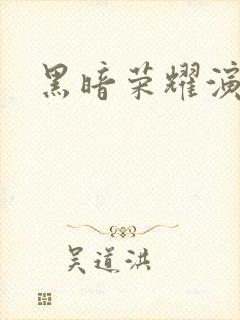 黑暗荣耀演
吴道洪